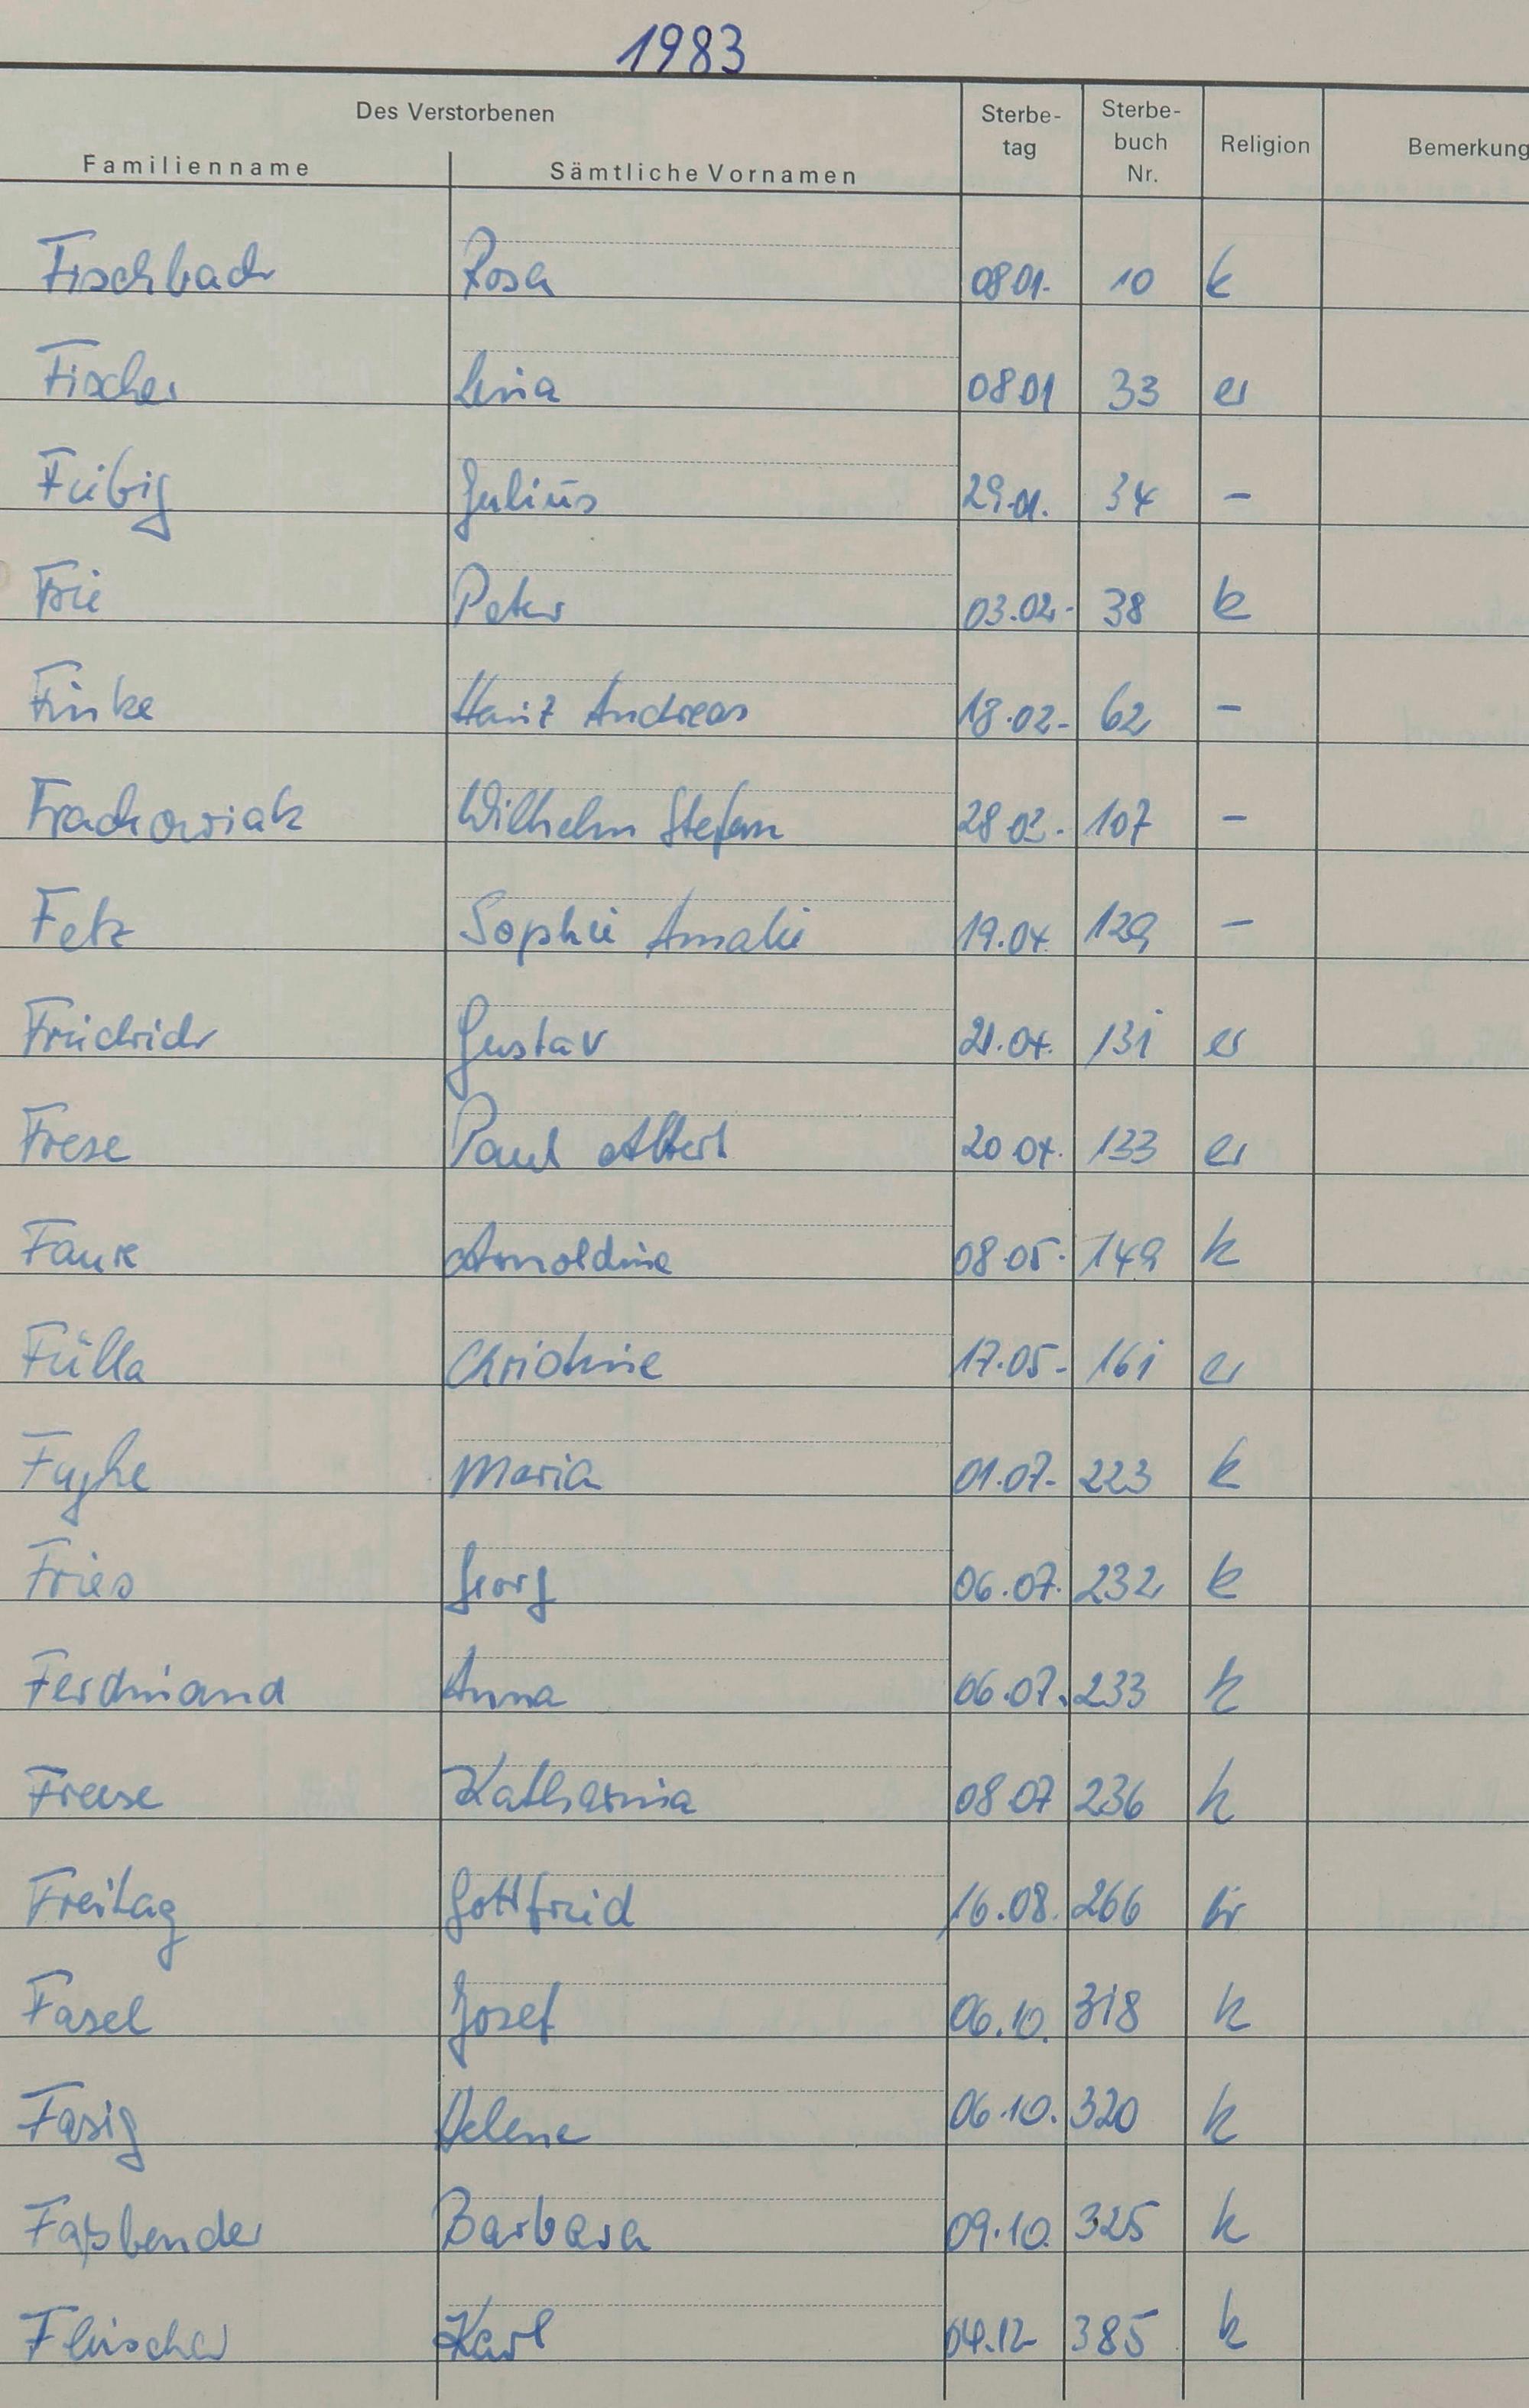 1983
Des Verstorbenen
Familienname Sämtliche Vornamen Sterbe-tag Sterbe-buch Nr. Religion Bemerkung
Fischbach Rosa 08 01. 10 k
Fischer Lina 08 01 33 ev
Fiebig Julius 29.01. 34 –
Frie Peter 03.02. 38 k
Finke Heinz Andreas 18.02. 62 –
Frackowiak Wilhelm Stefan 28 02. 107 –
Fetz Sophie Amalie 19.04. 129 –
Friedrich Gustav 21.04. 131 ev
Frese Paul Albert 20 04. 133 ev
Fank Arnoldine 08.05. 149 k
Fülla Christine 17.05. 161 ev
Maria 01.07. 223 k
Fries Georg 06.07. 232 k
Ferdinand Anna 06.07. 233 k
Freese Katharina 08 07 236 k
Freitag Gottfried 16.08. 266
Fasel Josef 06.10. 318 k
Fasig Helene 06 10. 320 k
Faßbender Barbara 09.10. 325 k
Fleischer Karl 04.12 385 k